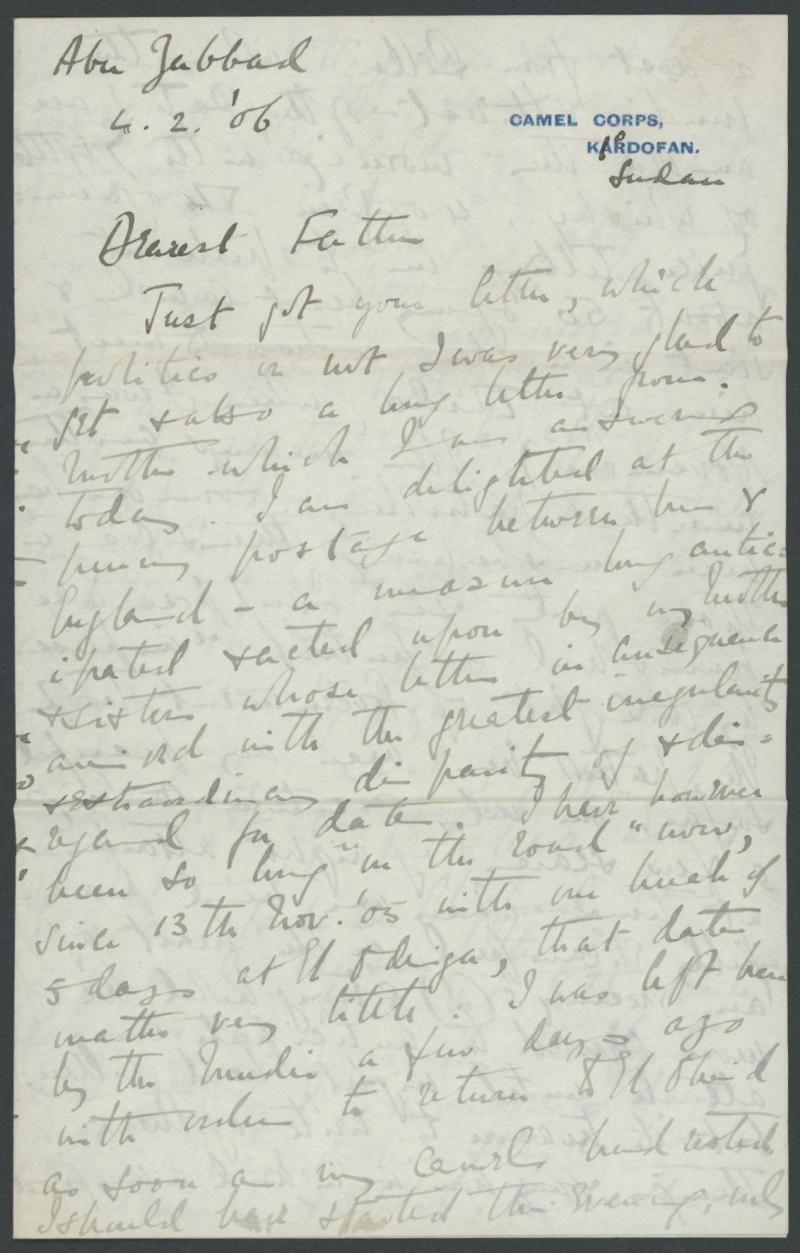 Abu Zabbad
4. 2. '06
CAMEL CORPS,
KARDOFAN.
Sudan
Dearest Father
Just got your letter, which
politics or not I was very glad to
get & also a long letter from
Mother which I am answering
today. I am delighted at the
penny postage between here &
England - a measure long antic=
ipated & acted upon by my Mother
& sisters whose letters in consequence
arrived with the greatest irregularity
& extraordinary disparity of & dis=
regard for date. I have however
been so long "on the road" now,
since 13th Nov. '05 with one break of
5 days at El Odeiya, that date
matters very little. I was left here
by the Mudir a few days ago
with orders to return to El Obeid
as soon as my camels had rested.
I should have started this evening, only